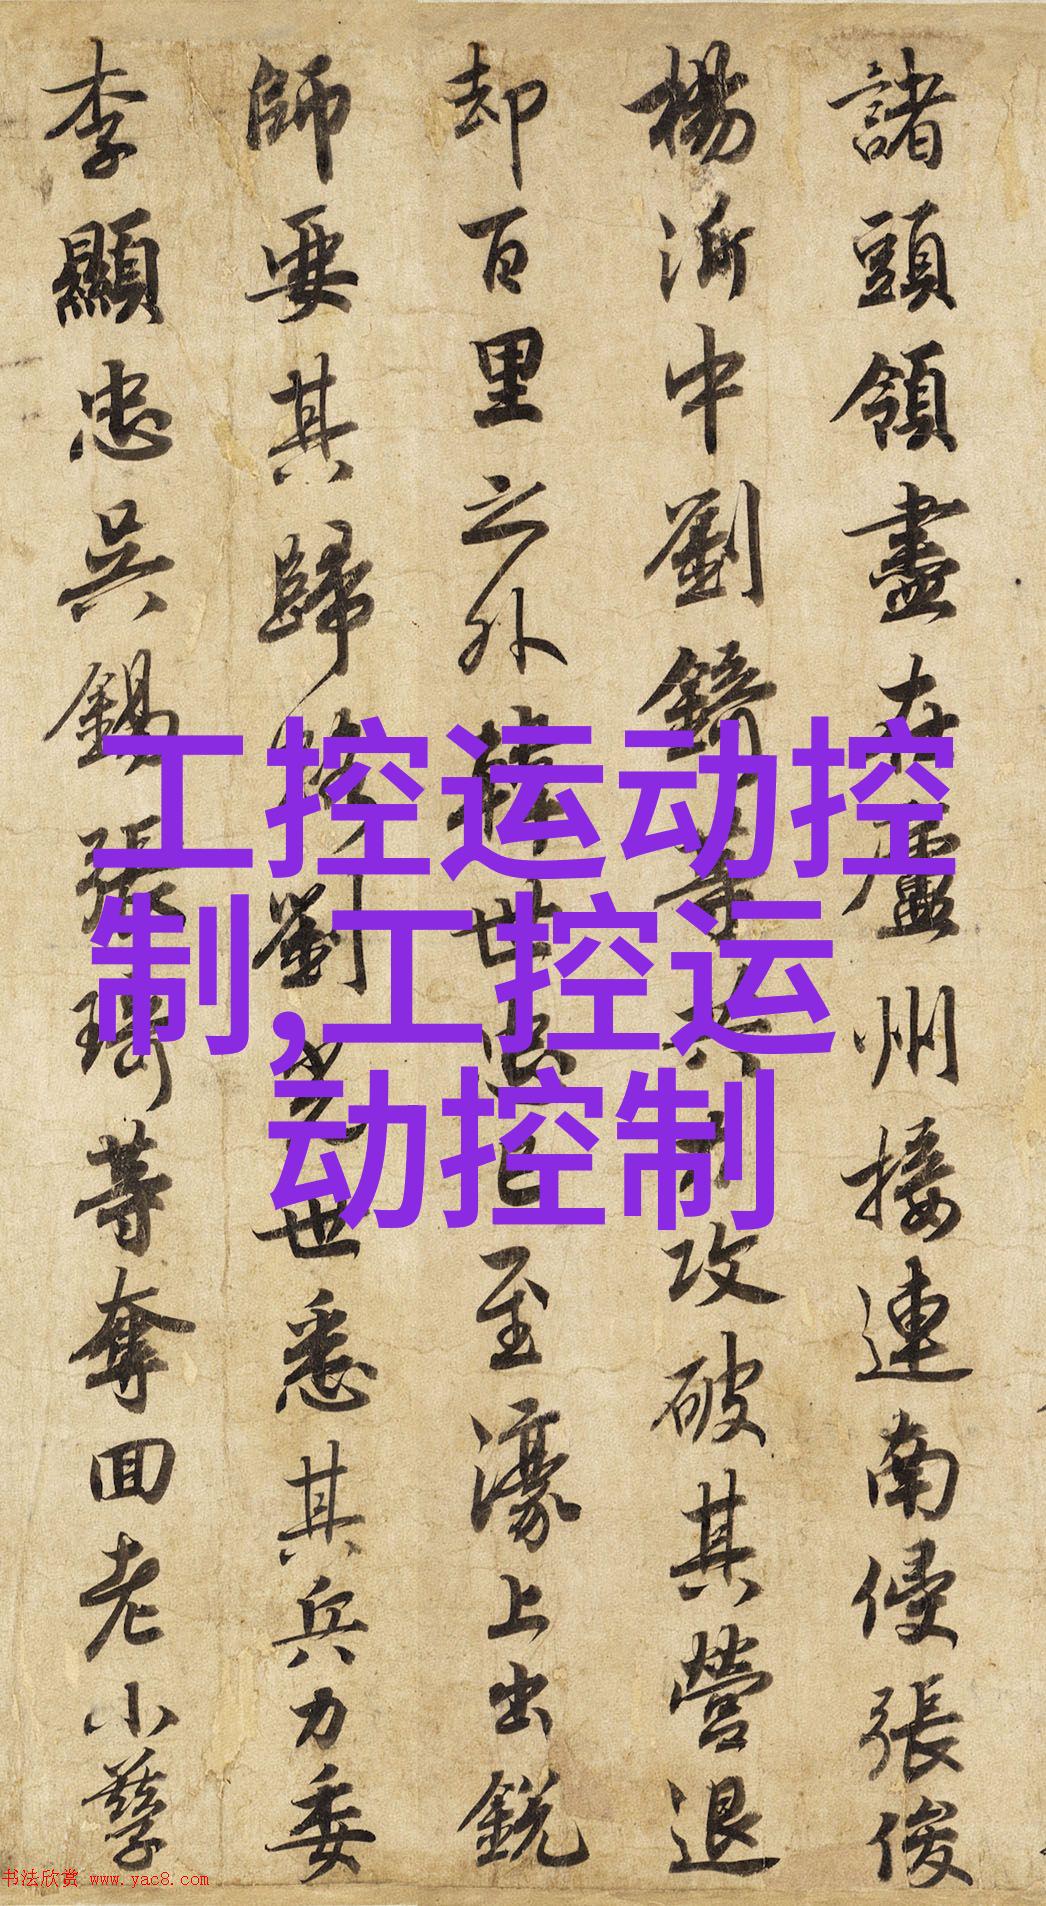 諸頭領盡在廬州接連南侵張俊
楊沂中劉錡等共力攻破其營退
却百里之外韓世忠已至濠上出銳
師要其歸路劉光世悉其兵力委
李顯忠吳錫張琦等奪回老小孳
工控运动控
制,工控运
动控制
书法欣赏 www.yac8.com